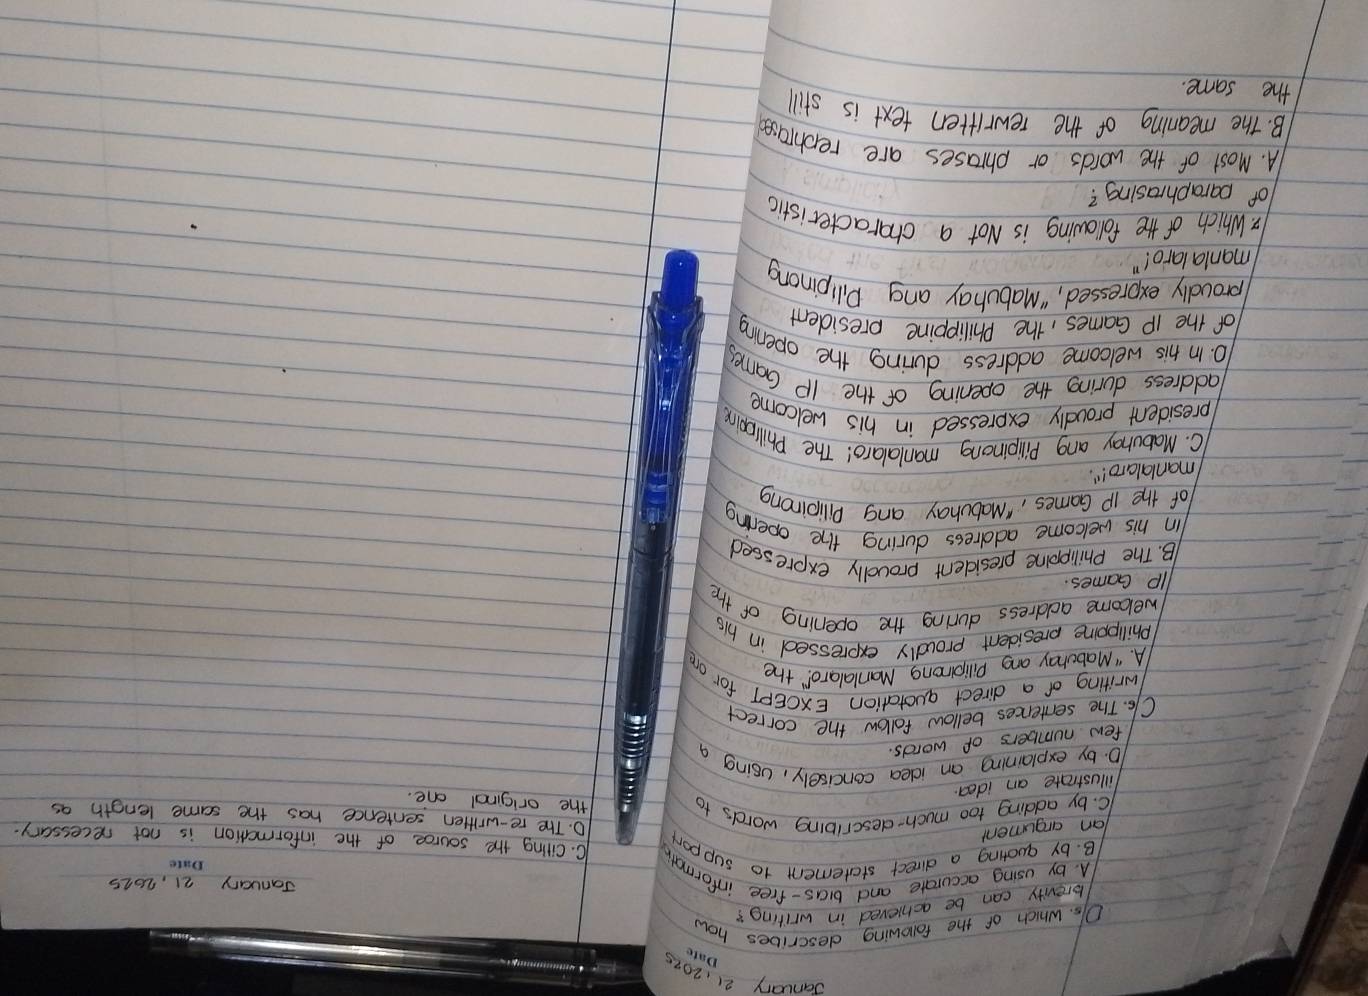 January 21, 2025
Date
D 5. Which of the following describes how
brevity can be achieved in writing?
A. by using accurate and bias-free information
B. by quoting a direct statement to support
an argument
C. by adding too much-describing words to
illustrate an idea.
D. by explaining an idea concisely, using a
few numbers of words.
C 6. The sentences bellow follow the correct
writing of a direct quotation EXCEPT for one
A. "Mabuhay ang Pilipinong Manlalaro!" the
Philippine president proudly expressed in his
welcome address during the opening of the
IP Games.
B. The Philippine president proudly expressed
in his welcome address during the opening
of the IP Games, "Mabuhay ang Pilipinong
manlalaro!".
C. Mabuhay ang Pilipinong manlalaro! The Philippine
president proudly expressed in his welcome
address during the opening of the IP Games
D. In his welcome address during the opening
of the IP Games, the Philippine president
proudly expressed, "Mabuhay ang Pilipinong
manlalaro!"
7. Which of the following is Not a characteristic
of paraphrasing?
A. Most of the words or phrases are rephrased
B. The meaning of the rewritten text is still
the same.
January 21, 2025
Date
C. Citing the source of the information is not necessary.
D. The re-written sentence has the same length as
the original one.